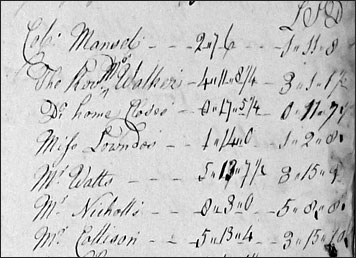 L S D
Col: Mansel - - 2=7=6 - 1=11=8
The Revd Mr Walker - 4=11=8¼ - 3=1=1½
Do home Closes - 0=17=5¼ - 0=11=7½
Miss Lowndes - - 1=14=0 - 1=2=8
Mr Watts - - 5=13=7½ 3=15=9
Mr Nicholls - - 8=3=0 - 5=8=8
Mr Collison - - 5=13=4 - 3=15=10